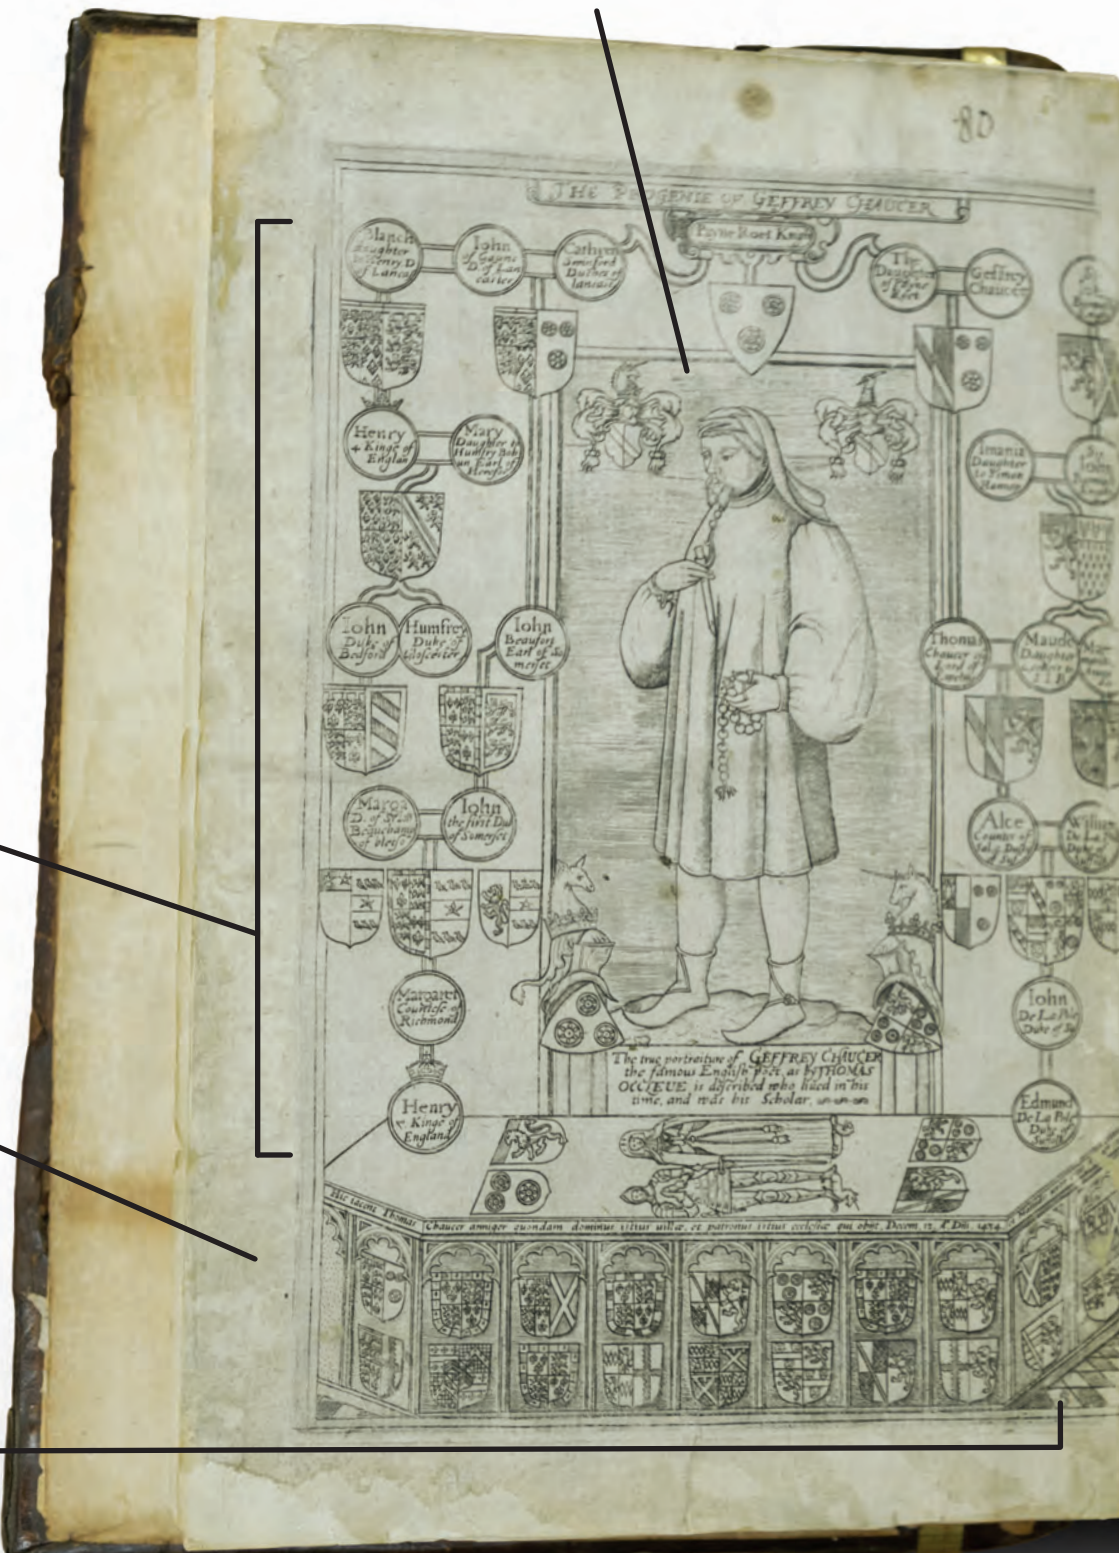 80
THE PROGENIE OF GEFFREY CHAUCER
Payne Roet Knight
Blanch
daughter
to Henry D
of Lanca
Iohn
of Gaunt
D. of Lan
caster
Cathrin
Duches of
lancast
The
Daughter
of Payne
Roet
Geffrey
Chaucer
Henry
4 Kinge of
Englan
Mary
Daughter to
Humfry Boh
un Earl of
Herefor
Daughter
to Symon
Iohn
Iohn
Duke of
Bedford
Humfrey
Duke of
Glocester
Iohn
Beaufort
Earl of So
merset
Thomas
Chaucer
Lord of
Maude
Daughter
Marga
D. of Sr Io
Beauchamp
of bletso
Iohn
the first Duk
of Somerset
Alce
Countes of
William
De La
Duke
Margaret
Countese of
Richmond
Iohn
De La Pole
Duke of Su
Henry
7 Kinge of
England
Edmund
De La Pole
Duke of
The true portraiture of GEFFREY CHAUCER
the famous English Poet, as by THOMAS
OCCLEUE is described who liued in his
time, and was his Scholar.
Hic iacent Thomas
Chaucer armiger quondam dominus istius uillæ, et patronus istius ecclesiæ qui obijt